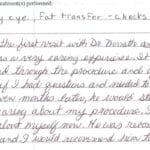 treatment(s) performed:
y eye, Fat transfer - cheeks
the first visit with Dr.
as a very caring experience. It
d through the procedure and
if I had questions and needed to
ven months later, he would st
caring about my procedure. I
about myself now. He was reco
and I would recommend him to